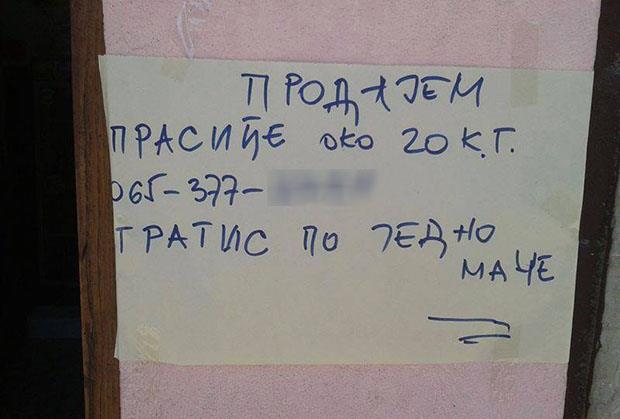 ПРОДАЈЕМ
ПРАСИЋЕ око 20 К.Г.
065-377-
ГРАТИС ПО ЈЕДНО
МАЧЕ